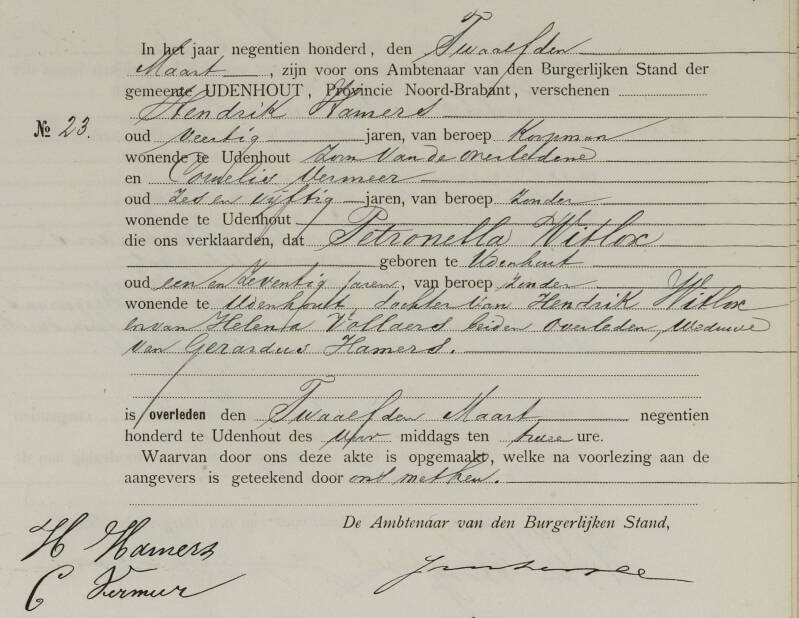 In het jaar negentien honderd, den Twaalfden
Maart, zijn voor ons Ambtenaar van den Burgerlijken Stand der
gemeente UDENHOUT, Provincie Noord-Brabant, verschenen
Hendrik Hamers
№ 23.
oud veertig jaren, van beroep Koopman
wonende te Udenhout zoon van de overledene
en Cornelis Vermeer
oud zes en vijftig jaren, van beroep zonder
wonende te Udenhout
die ons verklaarden, dat Petronella Witlox
geboren te Udenhout
oud een en zeventig jaren, van beroep zonder
wonende te Udenhout, dochter van Hendrik Witlox
en van Helena Vollaers beiden overleden, weduwe
van Gerardus Hamers.
is overleden den Twaalfden Maart negentien
honderd te Udenhout des voor middags ten twee ure.
Waarvan door ons deze akte is opgemaakt, welke na voorlezing aan de
aangevers is geteekend door ons met hen.
De Ambtenaar van den Burgerlijken Stand,
H Hamers
C Vermeer